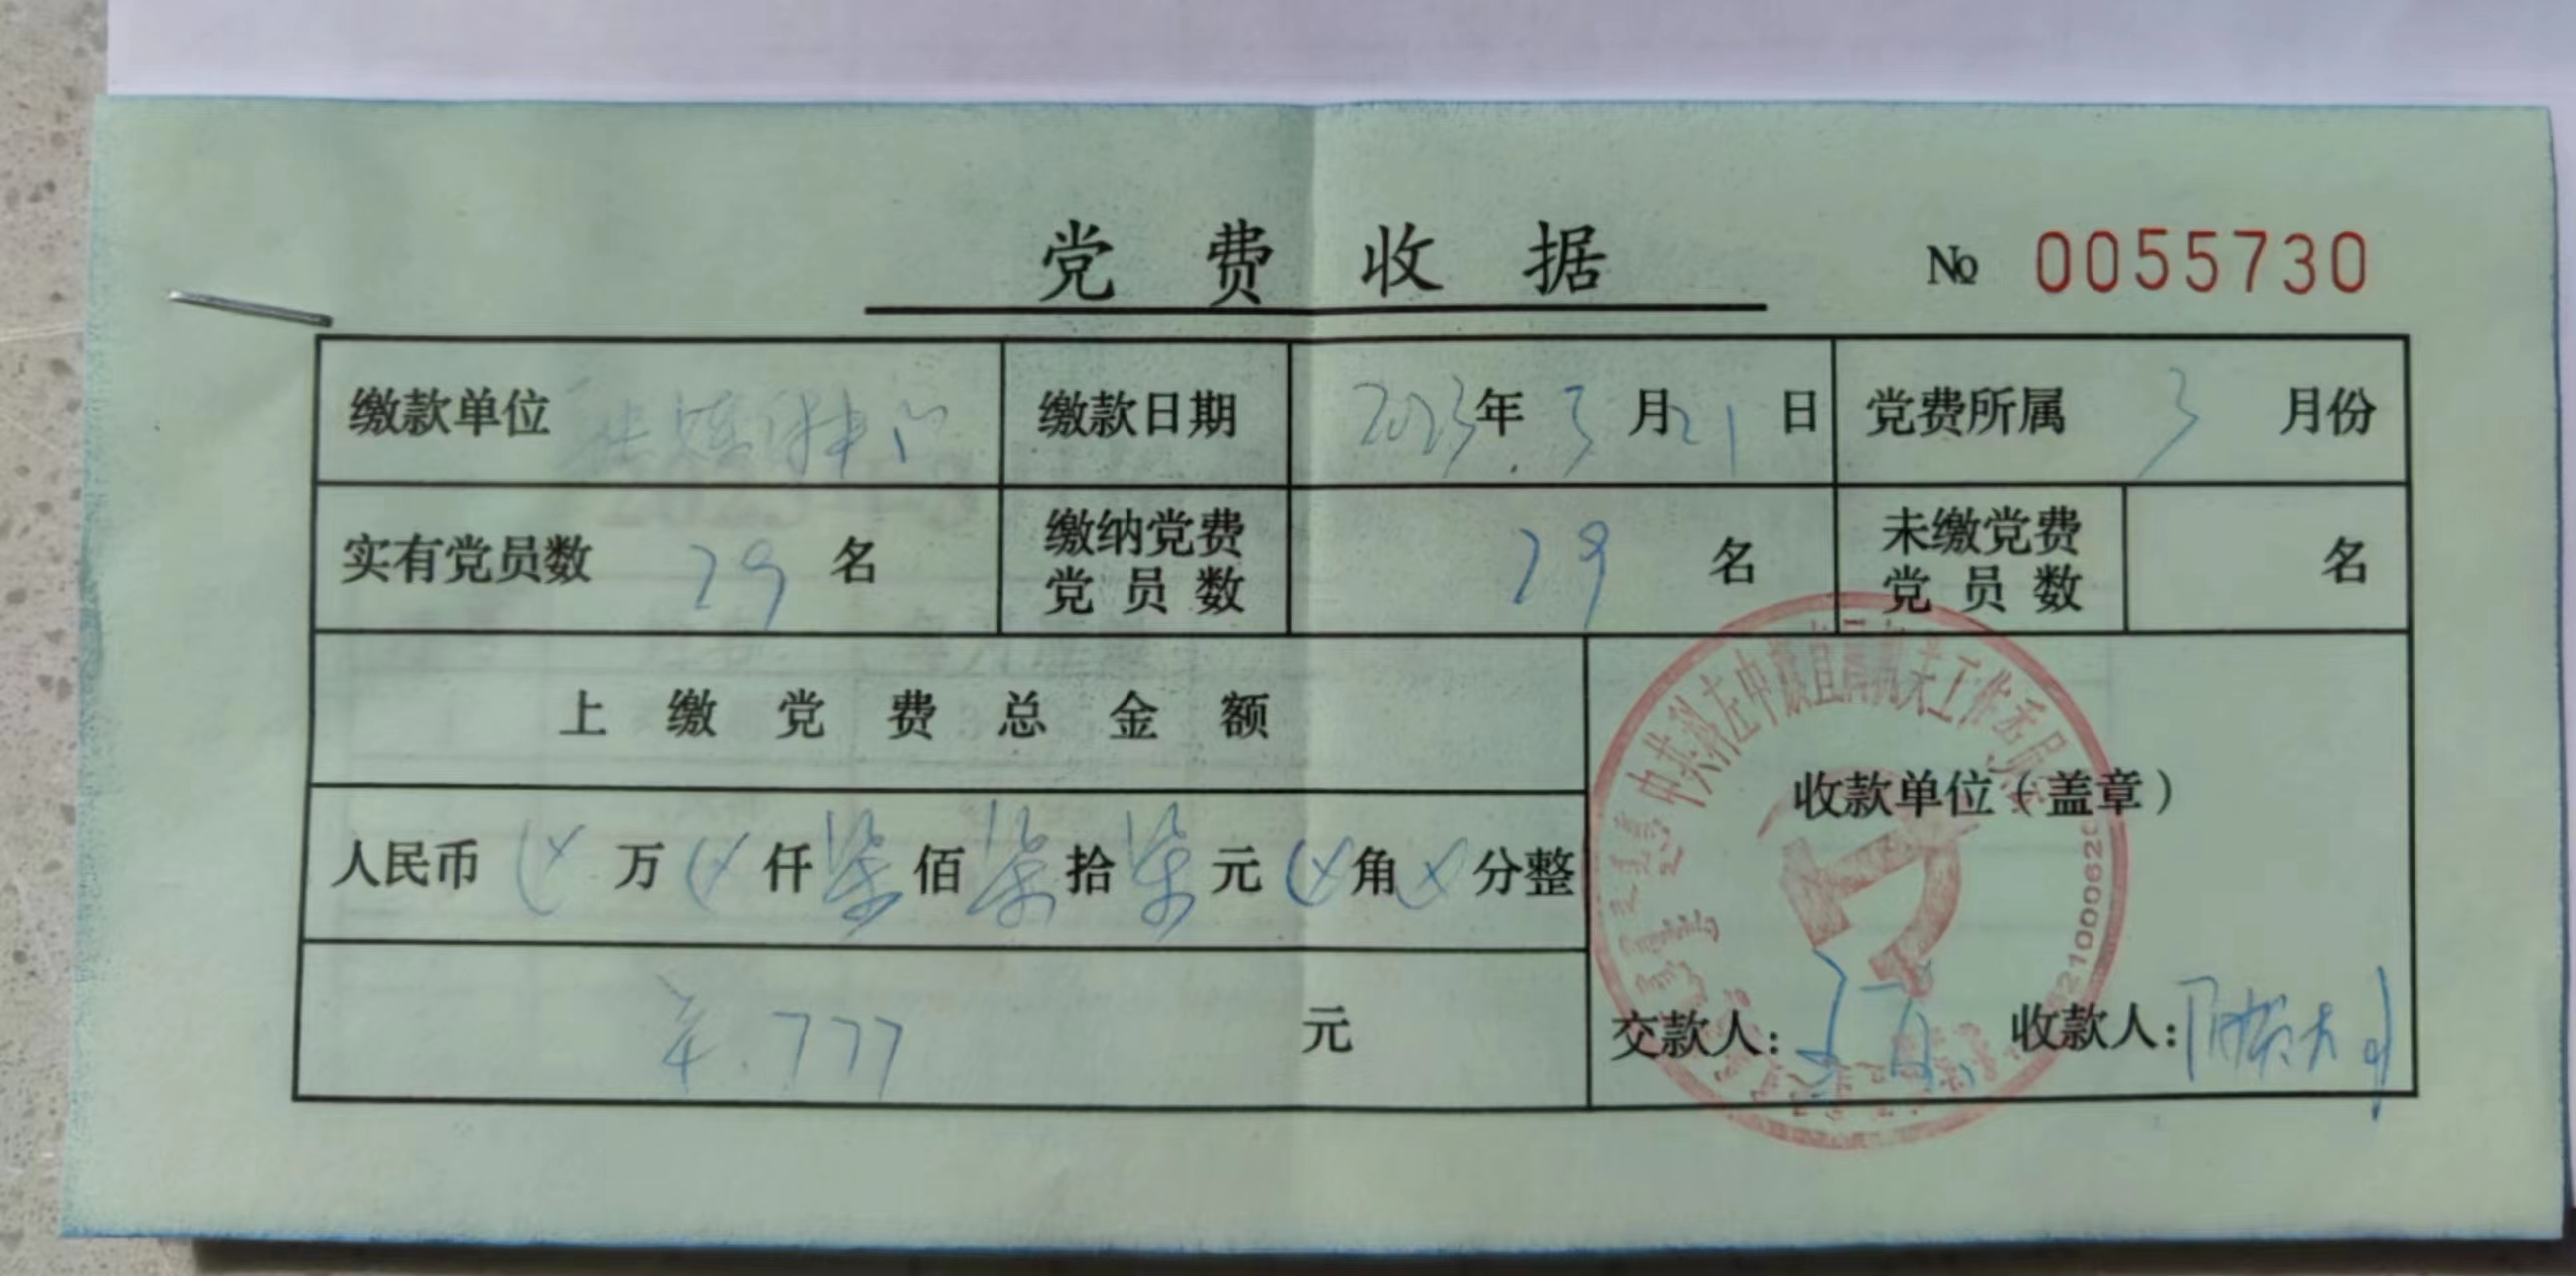 党费收据 № 0055730
缴款单位 缴款日期 2023年3月21日 党费所属 3 月份
实有党员数 29 名 缴纳党费党员数 29 名 未缴党费党员数 名
上缴党费总金额
人民币 万 仟 柒佰 柒拾 柒元 角 分整
收款单位（盖章）
¥.777 元
交款人： 收款人：
中共科左中旗直属机关工作委员会